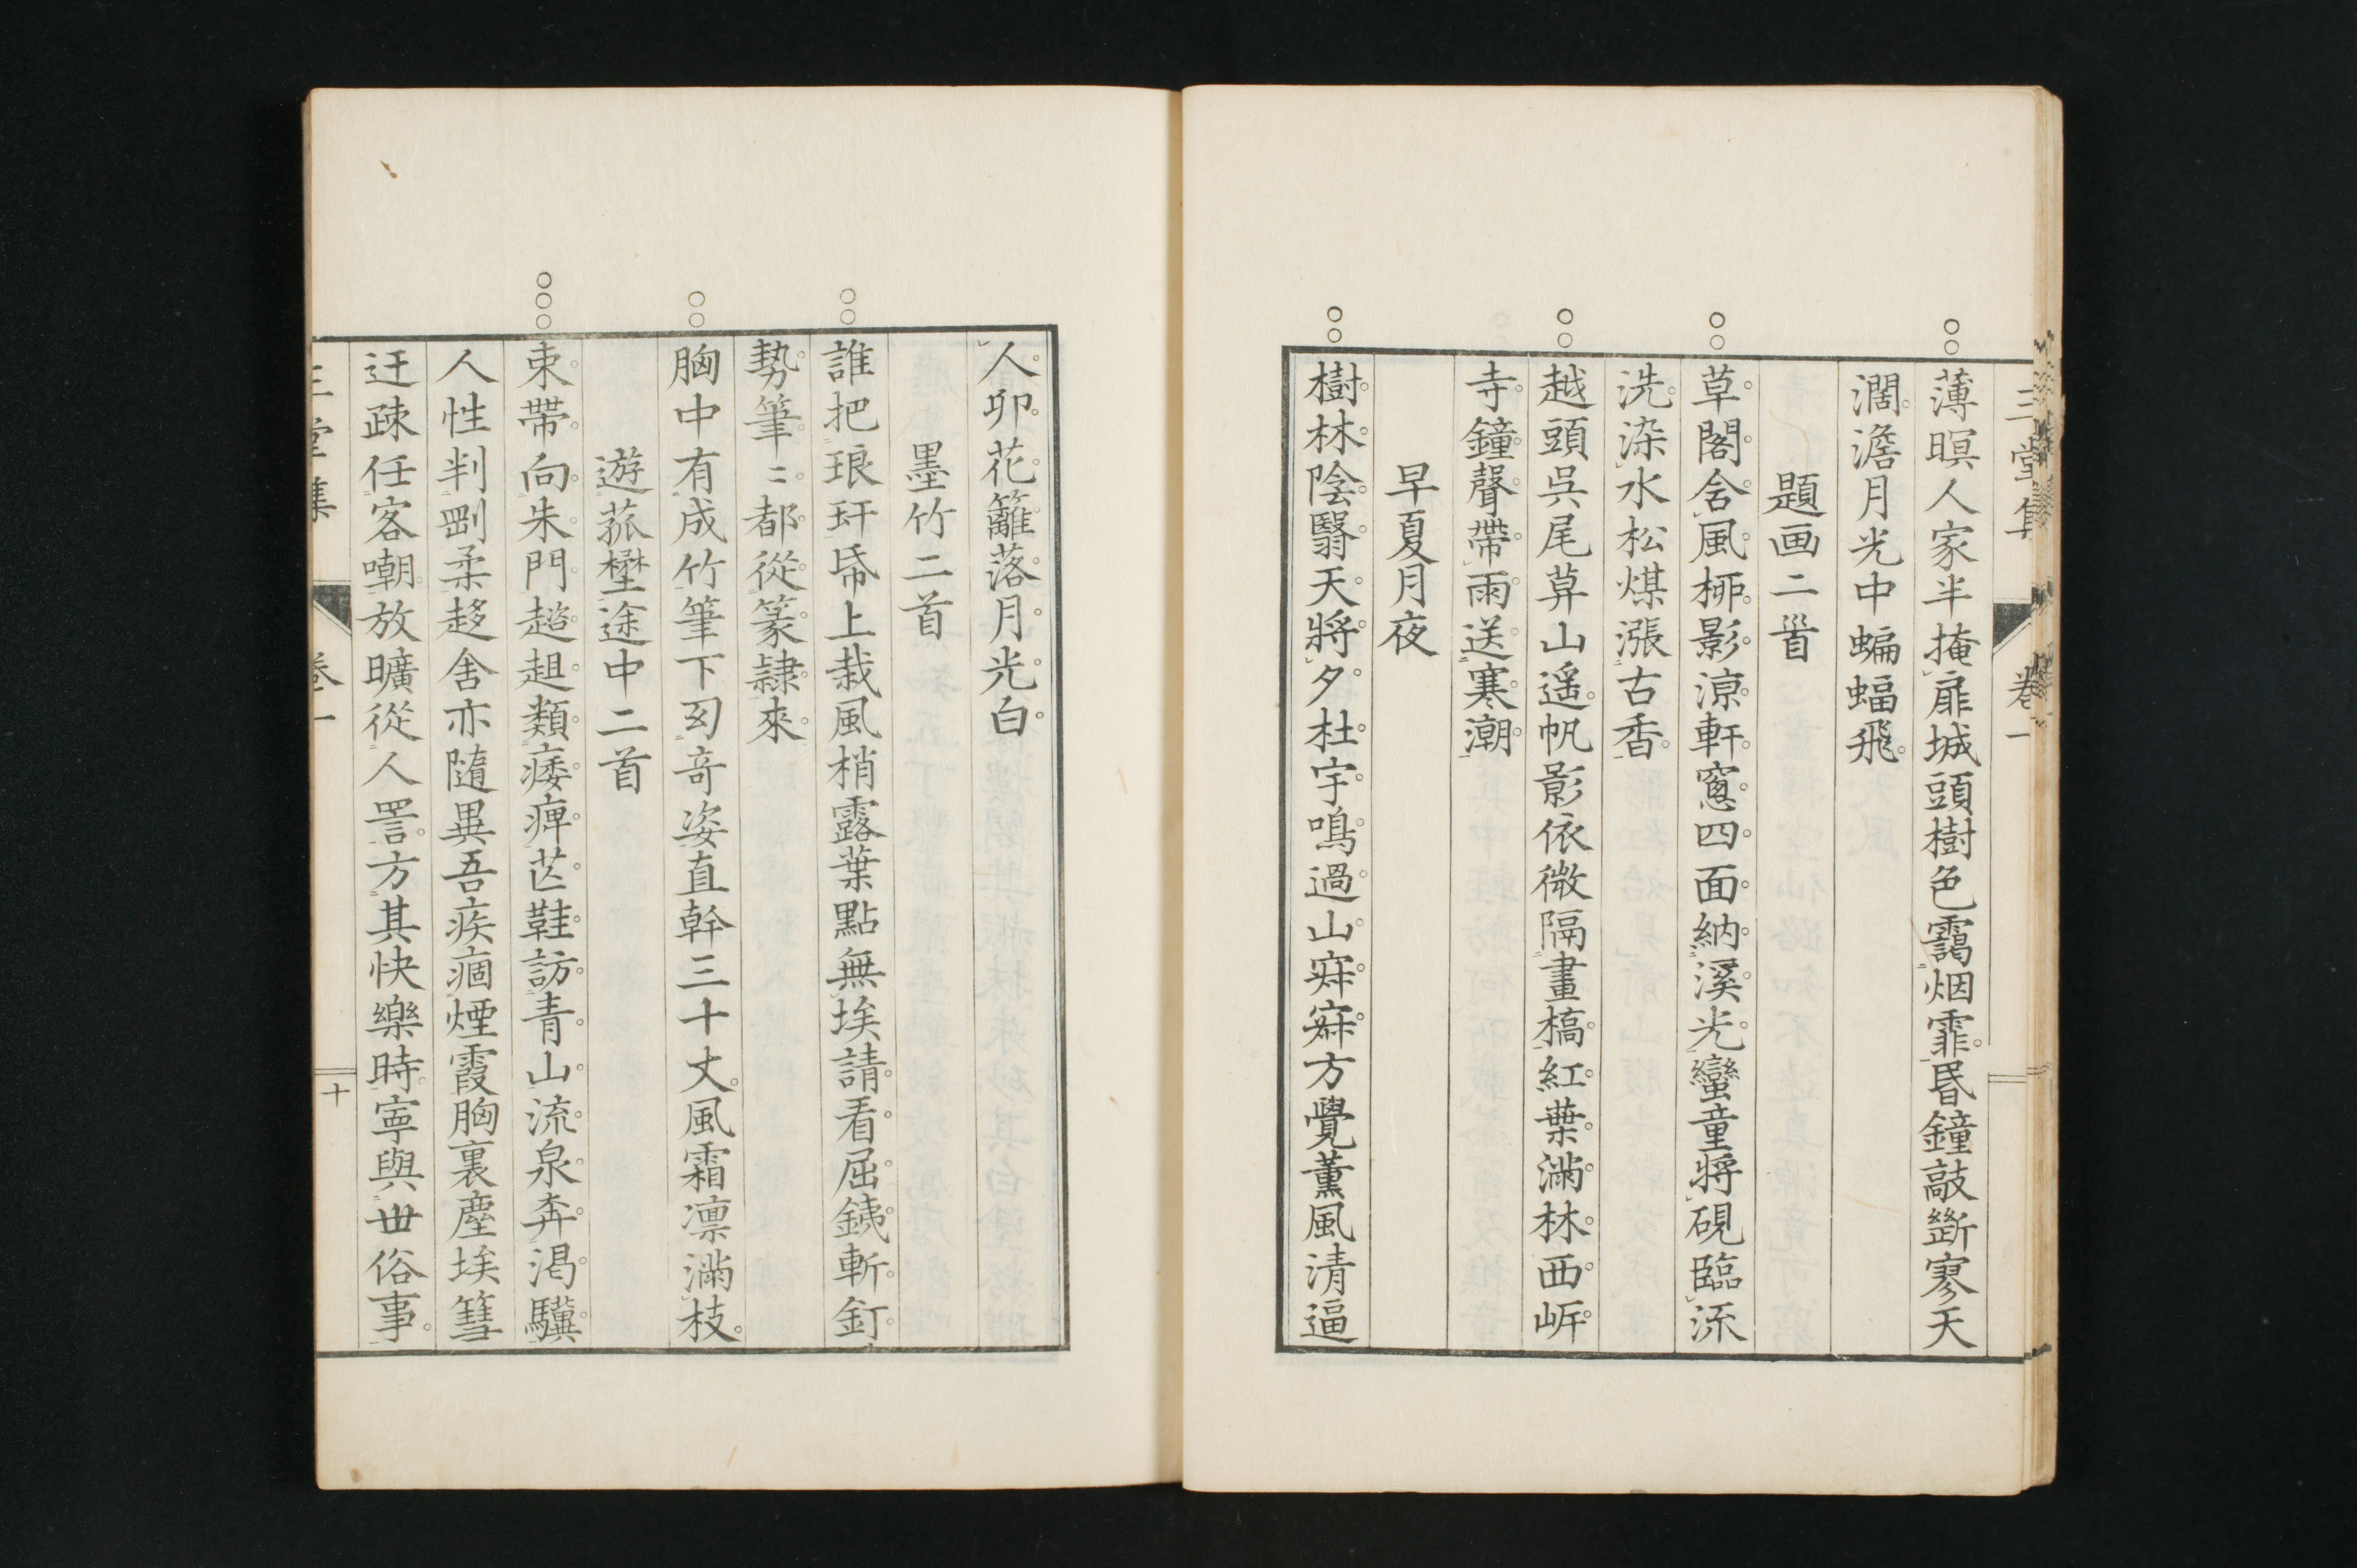 三堂集 卷一
薄暝人家半掩扉城頭樹色靄烟霏昏鐘敲斷寥天
濶澹月光中蝙蝠飛
題画二首
草閣含風栁影涼軒窓四面納溪光蠻童將硯臨流
洗染水松煤漲古香
越頭吳尾莽山遥帆影依微隔畫橋紅葉滿林西岍
寺鐘聲帶雨送寒潮
早夏月夜
樹林陰翳天將夕杜宇鳴過山寂寂方覺薰風清逼
人卯花籬落月光白
墨竹二首
誰把琅玕帋上栽風梢露葉點無埃請看屈銕斬釘
勢筆〻都從篆隷來
胸中有成竹筆下幻竒姿直幹三十丈風霜凛滿枝
遊菰樊途中二首
束帶向朱門趦趄類痿痺芒鞋訪青山流泉奔渇驥
人性判剛柔趍舍亦隨異吾疾痼煙霞胸裏塵埃篲
迂疎任客嘲放曠從人詈方其快樂時寜與丗俗事
三堂集 卷一 十